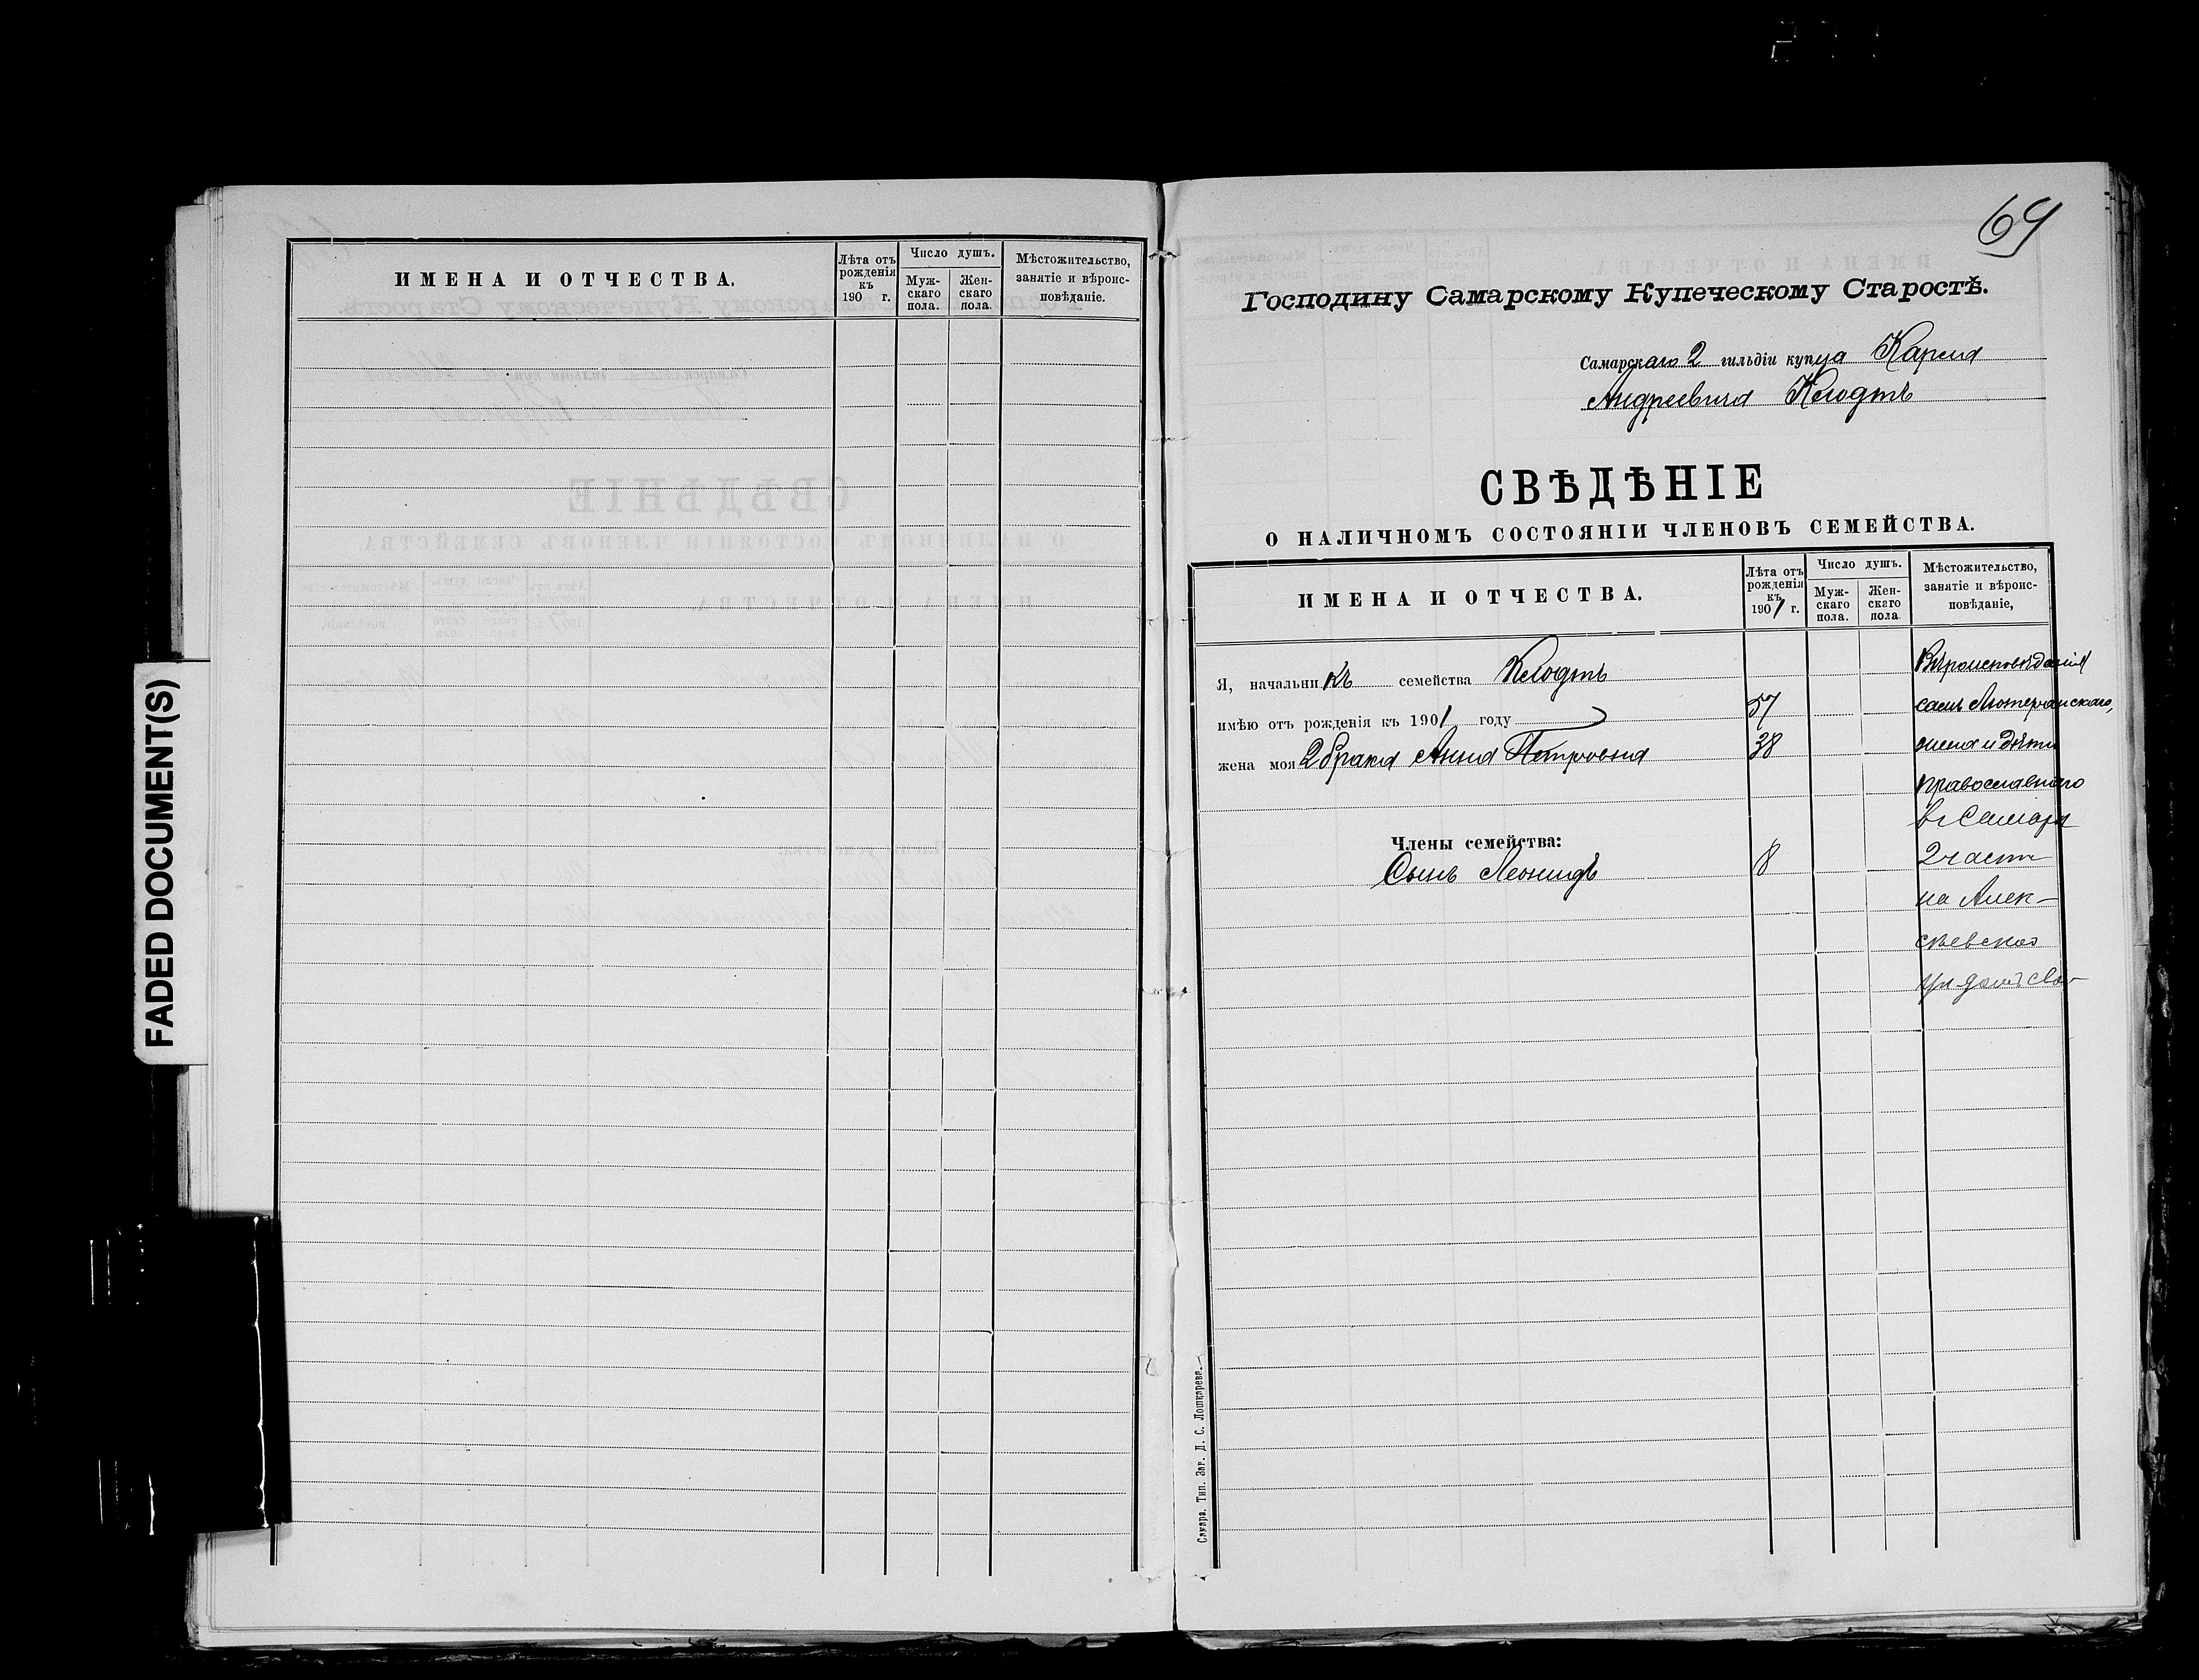 FADED DOCUMENT(S)
ИМЕНА И ОТЧЕСТВА.
Лѣта отъ рожденія къ 190 г.
Число душъ.
Мужскаго пола.
Женскаго пола.
Мѣстожительство, занятіе и вѣроисповѣданіе.
69
Господину Самарскому Купеческому Старостѣ.
Самарскаго 2 гильдіи купца Карла
Андреевича Клодтъ
СВѢДѢНІЕ
О НАЛИЧНОМЪ СОСТОЯНІИ ЧЛЕНОВЪ СЕМЕЙСТВА.
ИМЕНА И ОТЧЕСТВА.
Лѣта отъ рожденія къ 1901 г.
Число душъ.
Муж-
скаго
пола.
Жен-
скаго
пола.
Мѣстожительство,
занятіе и вѣроис-
повѣданіе,
Я, начальникъ семейства Клодтъ
Вѣроисповѣданія
имѣю отъ рожденія къ 1901 году 57
самъ Лютеранскаго,
жена моя 2 брака Анна Петровна 38
жена и дѣти
православнаго
въ Самарѣ
Члены семейства:
2 части
Сынъ Леонидъ 8
на Алек-
сѣевской
ул. домъ свой
Самара. Тип. Зав. Д. С. Лошкарева.